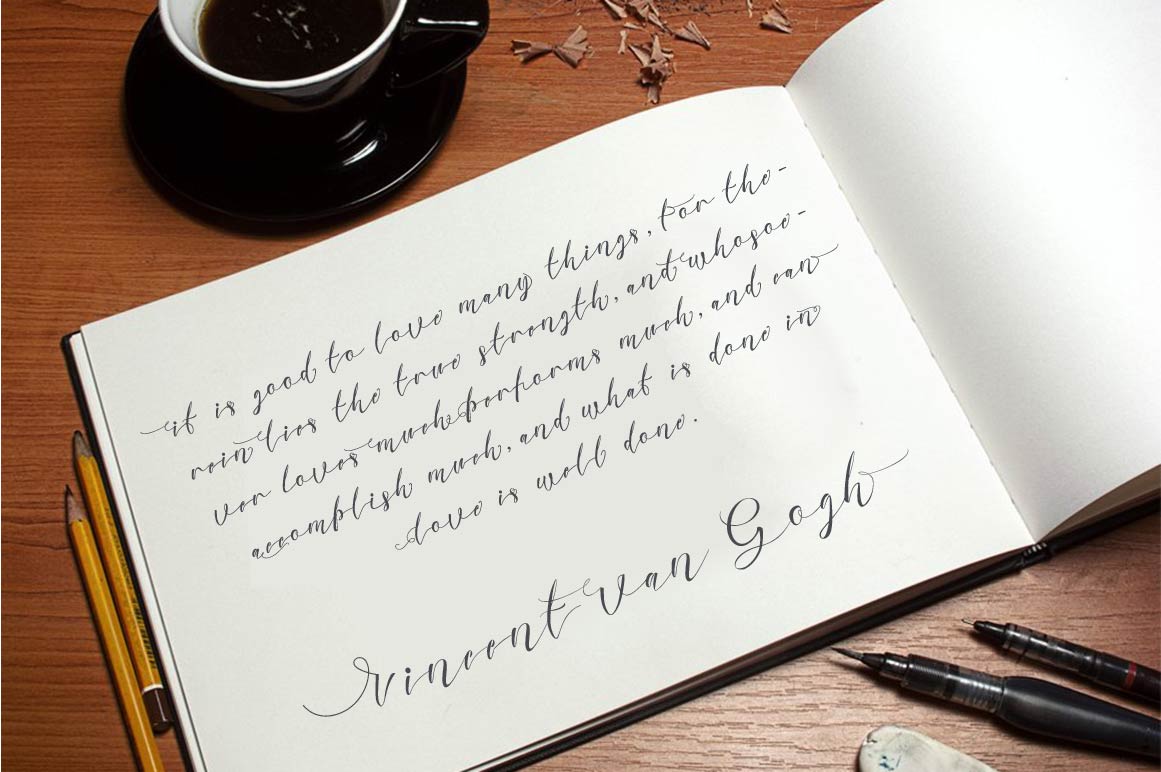 it is good to love many things, for the-
rein lies the true strength, and whosoe-
ver loves much performs much, and can
accomplish much, and what is done in
love is well done.
vincent van Gogh